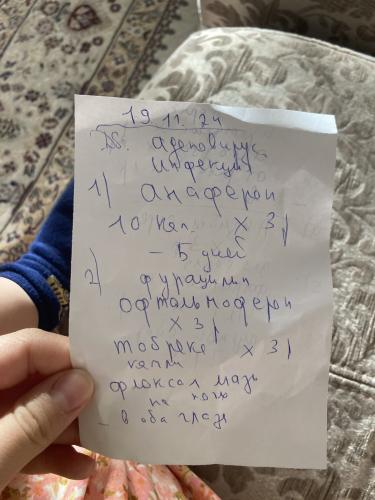 19.11.24
DS: аденовирус
инфекция
1) анаферон
10 кап. x 3 р
- 5 дней
2) фурацилин
офтальмоферон
x 3 р
тобрекс x 3 р
капли
флоксал мазь
на ночь
- в оба глаза